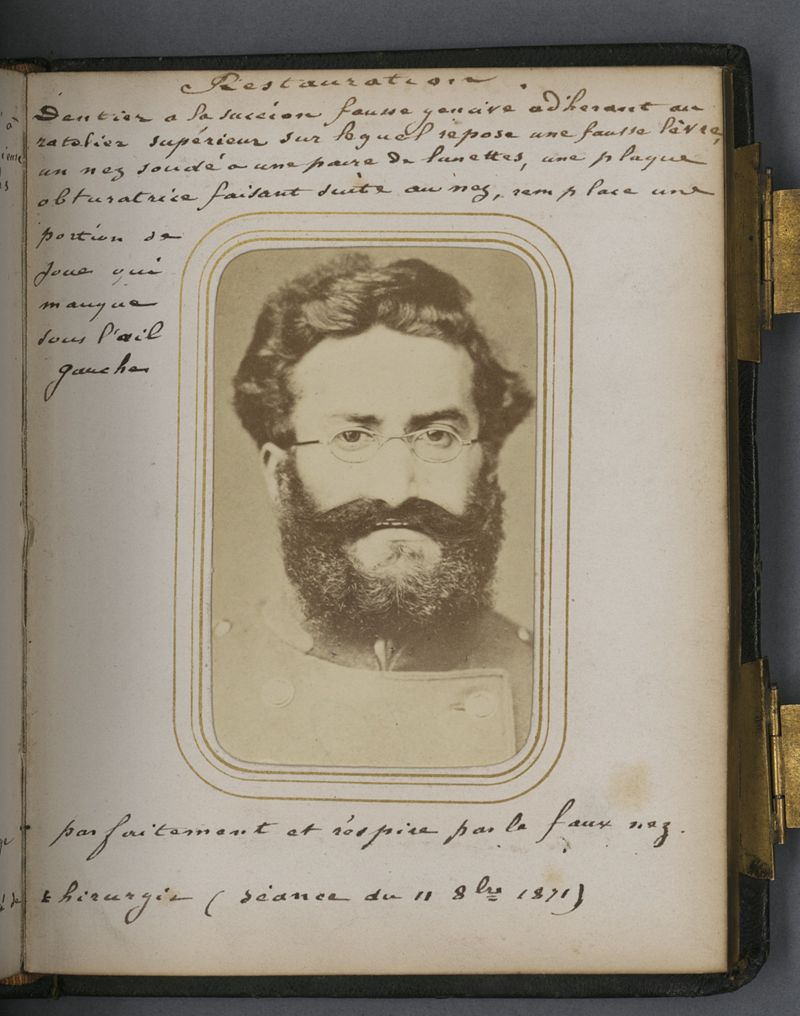 Restauration.
Dentier a la succion fausse gencive adherant au
ratelier supérieur sur lequel repose une fausse lèvre,
un nez soudé a une paire de lunettes, une plaque
obturatrice faisant suite au nez, remplace une
portion de
joue qui
manque
sous l'œil
gauche
parfaitement et réspire par le faux nez.
chirurgie (séance du 11 8bre 1871)